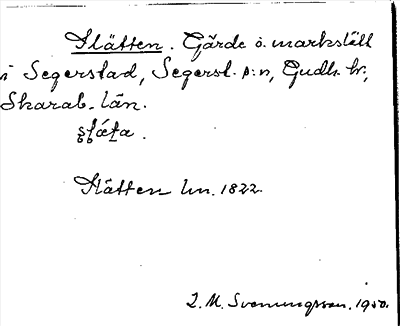 Slätten. Gärde o. markslätt
i Segerstad, Segerst. s:n, Gudh. hr,
Skarab. län.
slǽta.
Slätten lm. 1822.
L. M. Svenungsson. 1950.